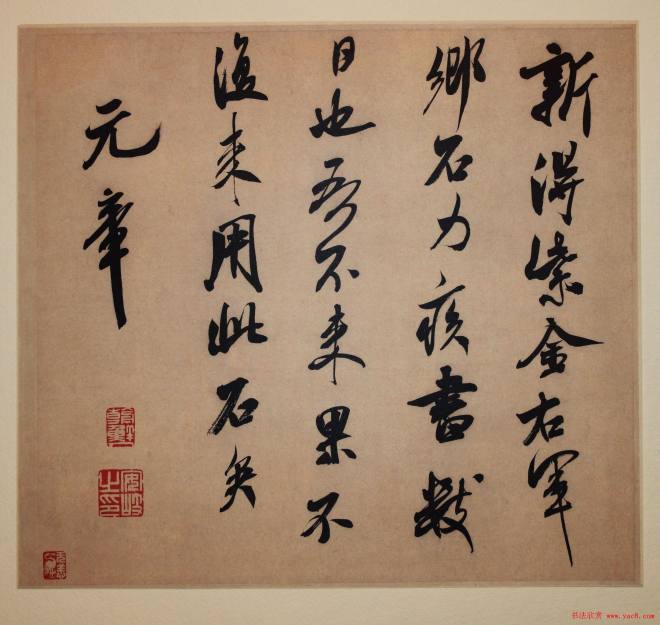 新得紫金右軍
鄉石力疾書數
日也吾不來果不
復來用此石矣
元章
安岐之印
书法欣赏 www.yac8.com